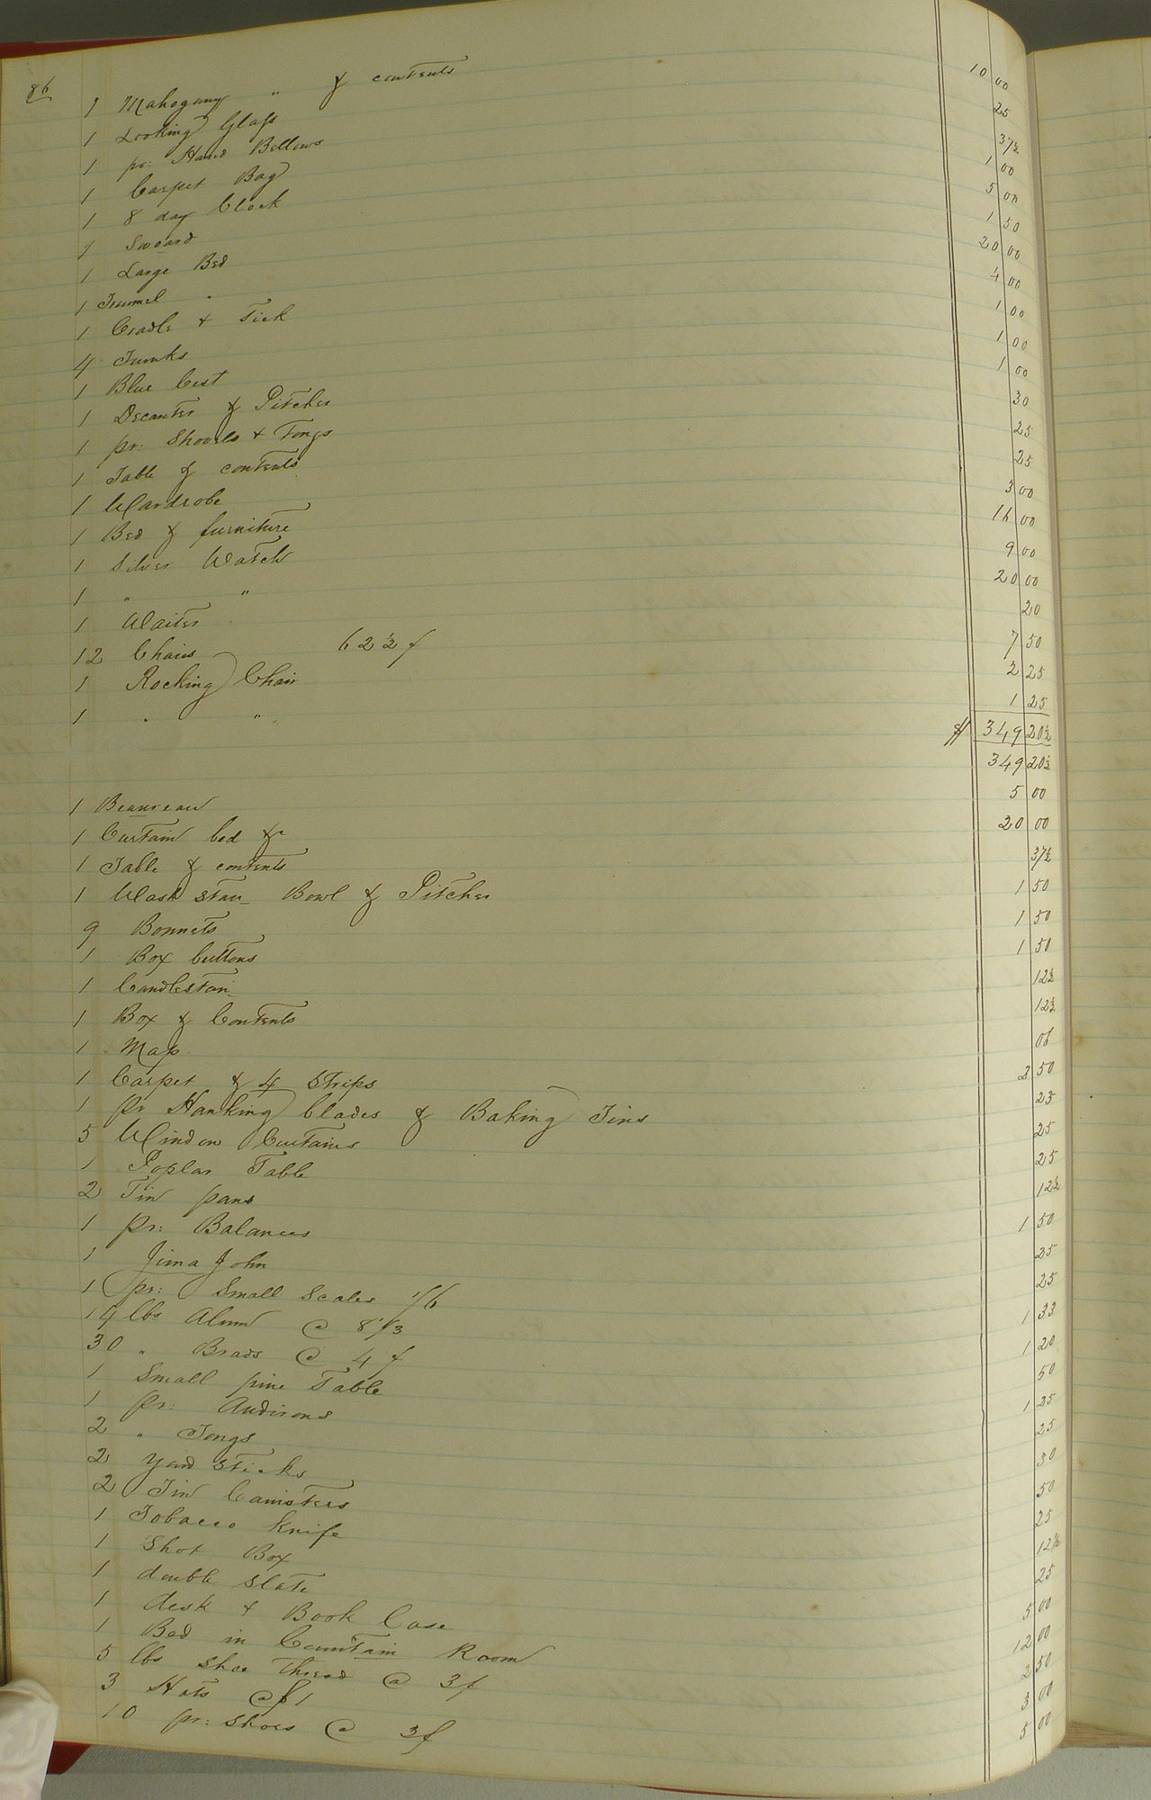 86
1 Mahogany " & contents 10 00
1 Looking Glass 25
1 pr: Hand Bellows 37½
1 Carpet Bag 1 00
1 8 day Clock 5 00
1 Sword 1 50
1 Large Bed 20 00
1 Trunnel " 4 00
1 Cradle & Tick 1 00
4 Trunks 1 00
1 Blue Cest 1 00
1 Decanter & Pitcher 30
1 pr: Shovels & Tongs 25
1 Table & contents 25
1 Wardrobe 3 00
1 Bed & furniture 16 00
1 Silver Watch 9 00
1 " " 20 00
1 Waiter 20
12 Chairs 62½ ¢ 7 50
1 Rocking Chair 2 25
1 " " 1 25
$ 349 20½
349 20½
1 Beaureau 5 00
1 Curtain bed &c 20 00
1 Table & contents 37½
1 Wash Stan_ Bowl & Pitcher 1 50
9 Bonnets 1 50
1 Box buttons 1 50
1 Candlestan_ 12½
1 Box & Contents 12½
1 Map 06
1 Carpet & 4 Strips 2 50
1 pr Hanking blades & Baking Tins 25
5 Window Curtains 25
1 Poplar Table 25
2 Tin pans 12½
1 pr: Balances 1 50
1 Jima John 25
1 pr: Small Scales 1/6 25
14 lbs Alum @ 8 1/3 1 33
30 " Brads @ 4 ¢ 1 20
1 Small pine Table 50
1 pr: Andirons 1 25
2 " Tongs 25
2 Yard Sticks 50
2 Tin Canisters 50
1 Tobacco knife 25
1 Shot Box 12½
1 double Slate 25
1 desk & Book Case 5 00
1 Bed in Countain Room 12 00
5 lbs Shoe Thread @ 3/ 2 50
3 Hats @ $1 3 00
10 pr: Shoes @ 3/ 5 00